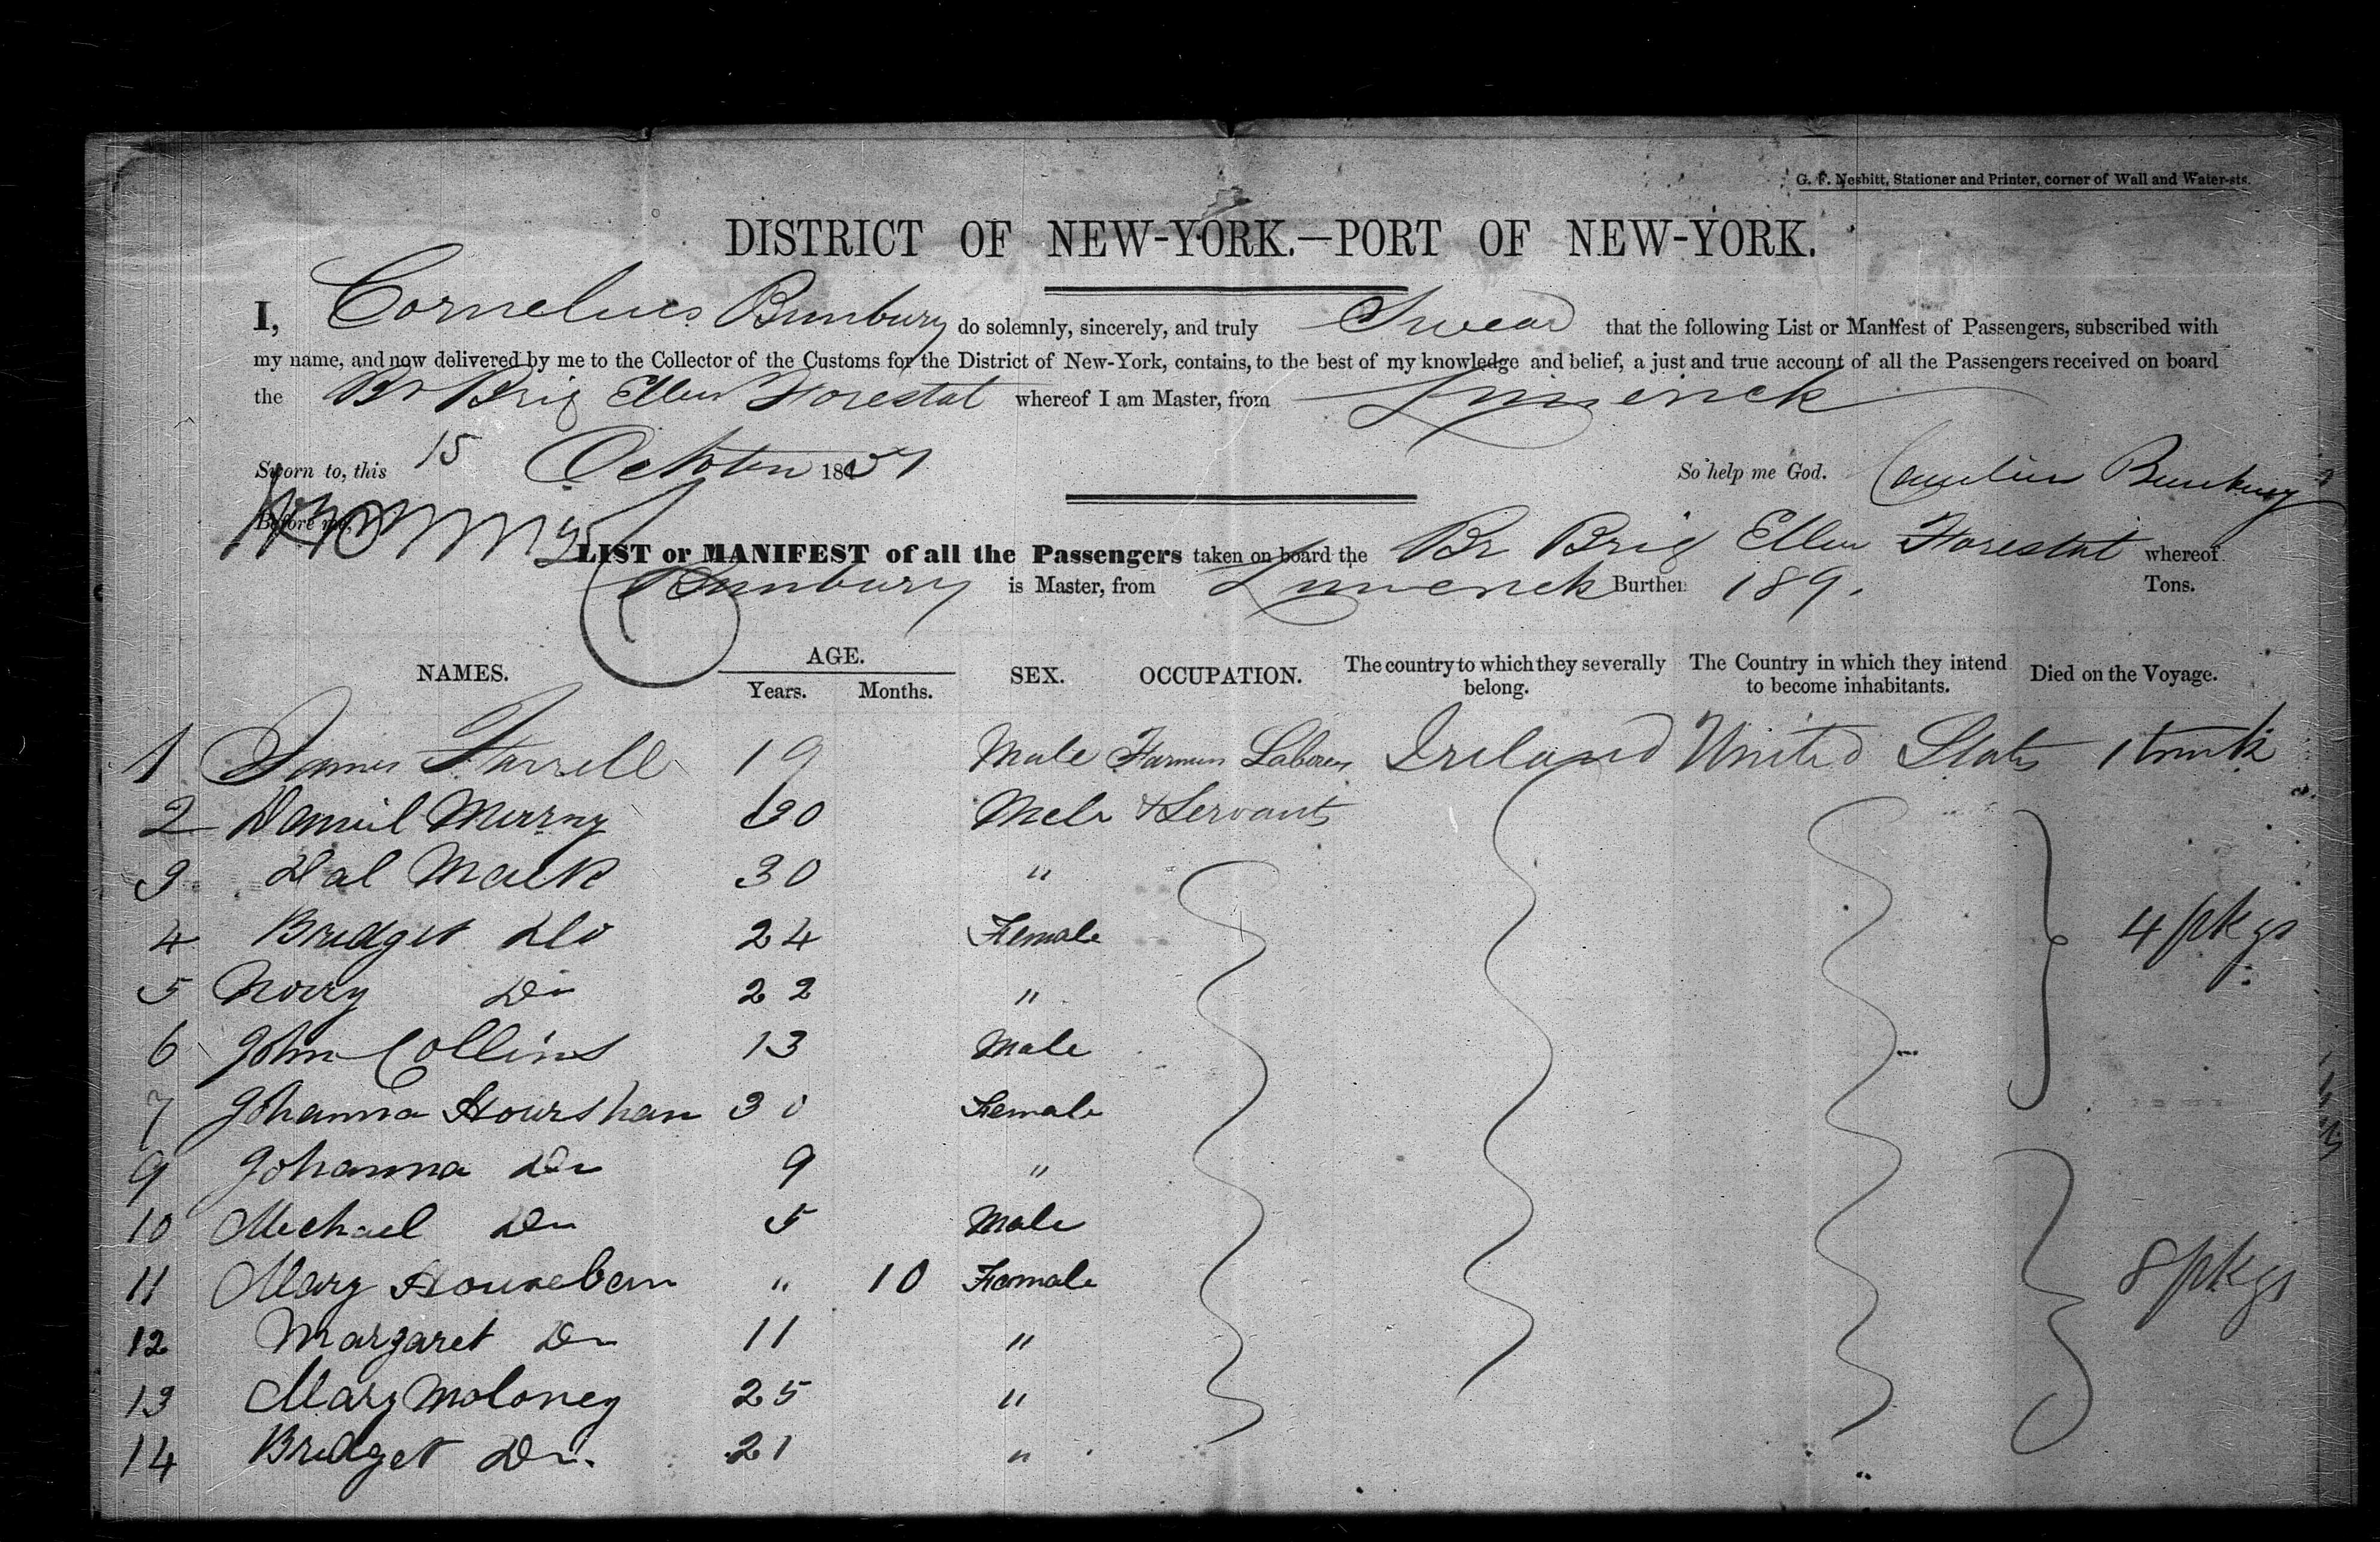 G. F. Nesbitt, Stationer and Printer, corner of Wall and Water-sts.
DISTRICT OF NEW-YORK.—PORT OF NEW-YORK.
I, Cornelius Bunbury do solemnly, sincerely, and truly Swear that the following List or Manifest of Passengers, subscribed with
my name, and now delivered by me to the Collector of the Customs for the District of New-York, contains, to the best of my knowledge and belief, a just and true account of all the Passengers received on board
the Br Brig Ellen Forestal whereof I am Master, from Limerick
Sworn to, this 15 October 1851 So help me God. Cornelius Bunbury
Before me,
LIST or MANIFEST of all the Passengers taken on board the Br Brig Ellen Forestal whereof
Bunbury is Master, from Limerick Burthen 189. Tons.
NAMES. AGE. Years. Months. SEX. OCCUPATION. The country to which they severally belong. The Country in which they intend to become inhabitants. Died on the Voyage.
1 James Farrell 19 Male Farmers Laborers Ireland United States 1 trunk
2 Daniel Murray 30 Male & Servants
3 Mack 30 "
4 Bridget Do 24 Female 4 pkgs
5 Norry Do 22 "
6 John Collins 13 Male
7 Johanna Hourshan 30 Female
9 Johanna Do 9 "
10 Michael Do 5 Male
11 Mary " 10 Female 8 pkgs
12 Margaret Do 11 "
13 Mary Moloney 25 "
14 Bridget Do. 21 "